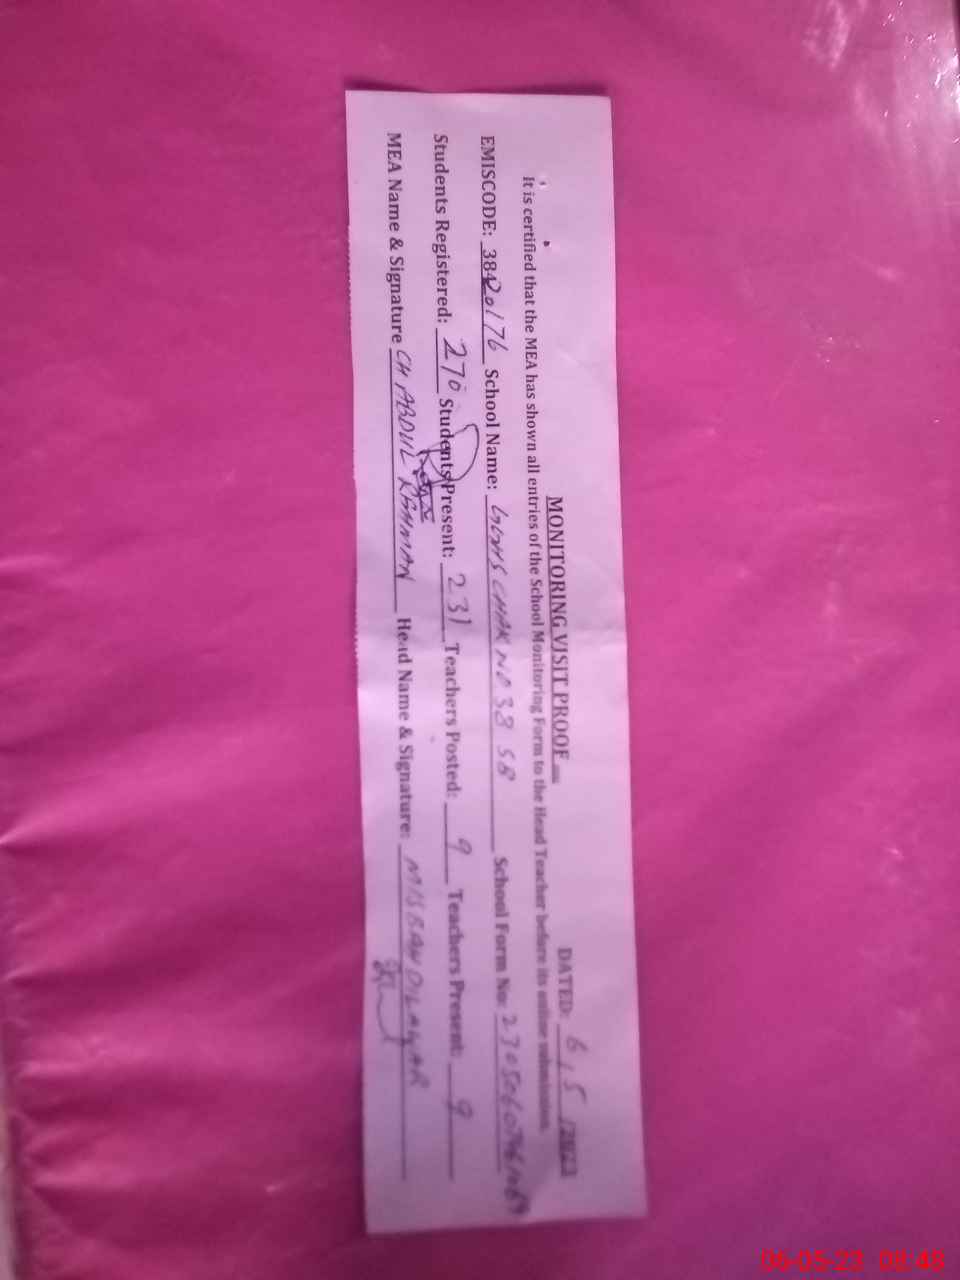 MONITORING VISIT PROOF
DATED: 6/5/2023
It is certified that the MEA has shown all entries of the School Monitoring Form to the Head Teacher before its online submission.
EMISCODE: 38420176 School Name: GGHS CHAK NO 38 SB School Form No:
Students Registered: 270 Students Present: 231 Teachers Posted: 9 Teachers Present: 9
MEA Name & Signature CH ABDUL REHMAN Head Name & Signature: MISBAH DILAWAR
06-05-23 08:48